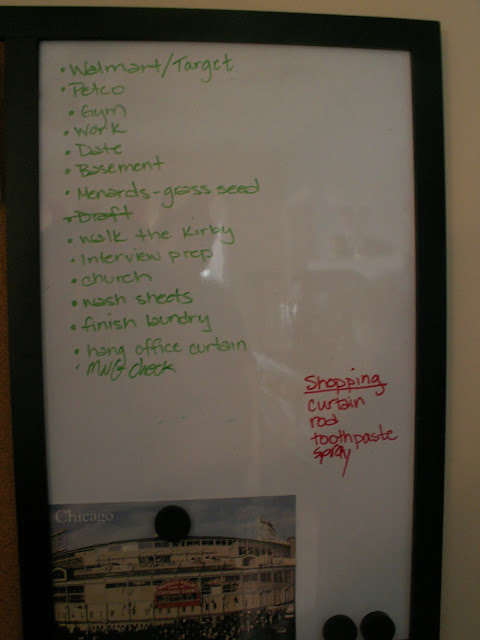 • Walmart/Target
• Petco
• Gym
• Work
• Date
• Basement
• Menards-grass seed
• Draft
• walk the Kirby
• Interview prep
• church
• wash sheets
• finish laundry
• hang office curtain
• MWG check
Shopping
curtain
rod
toothpaste
spray
Chicago